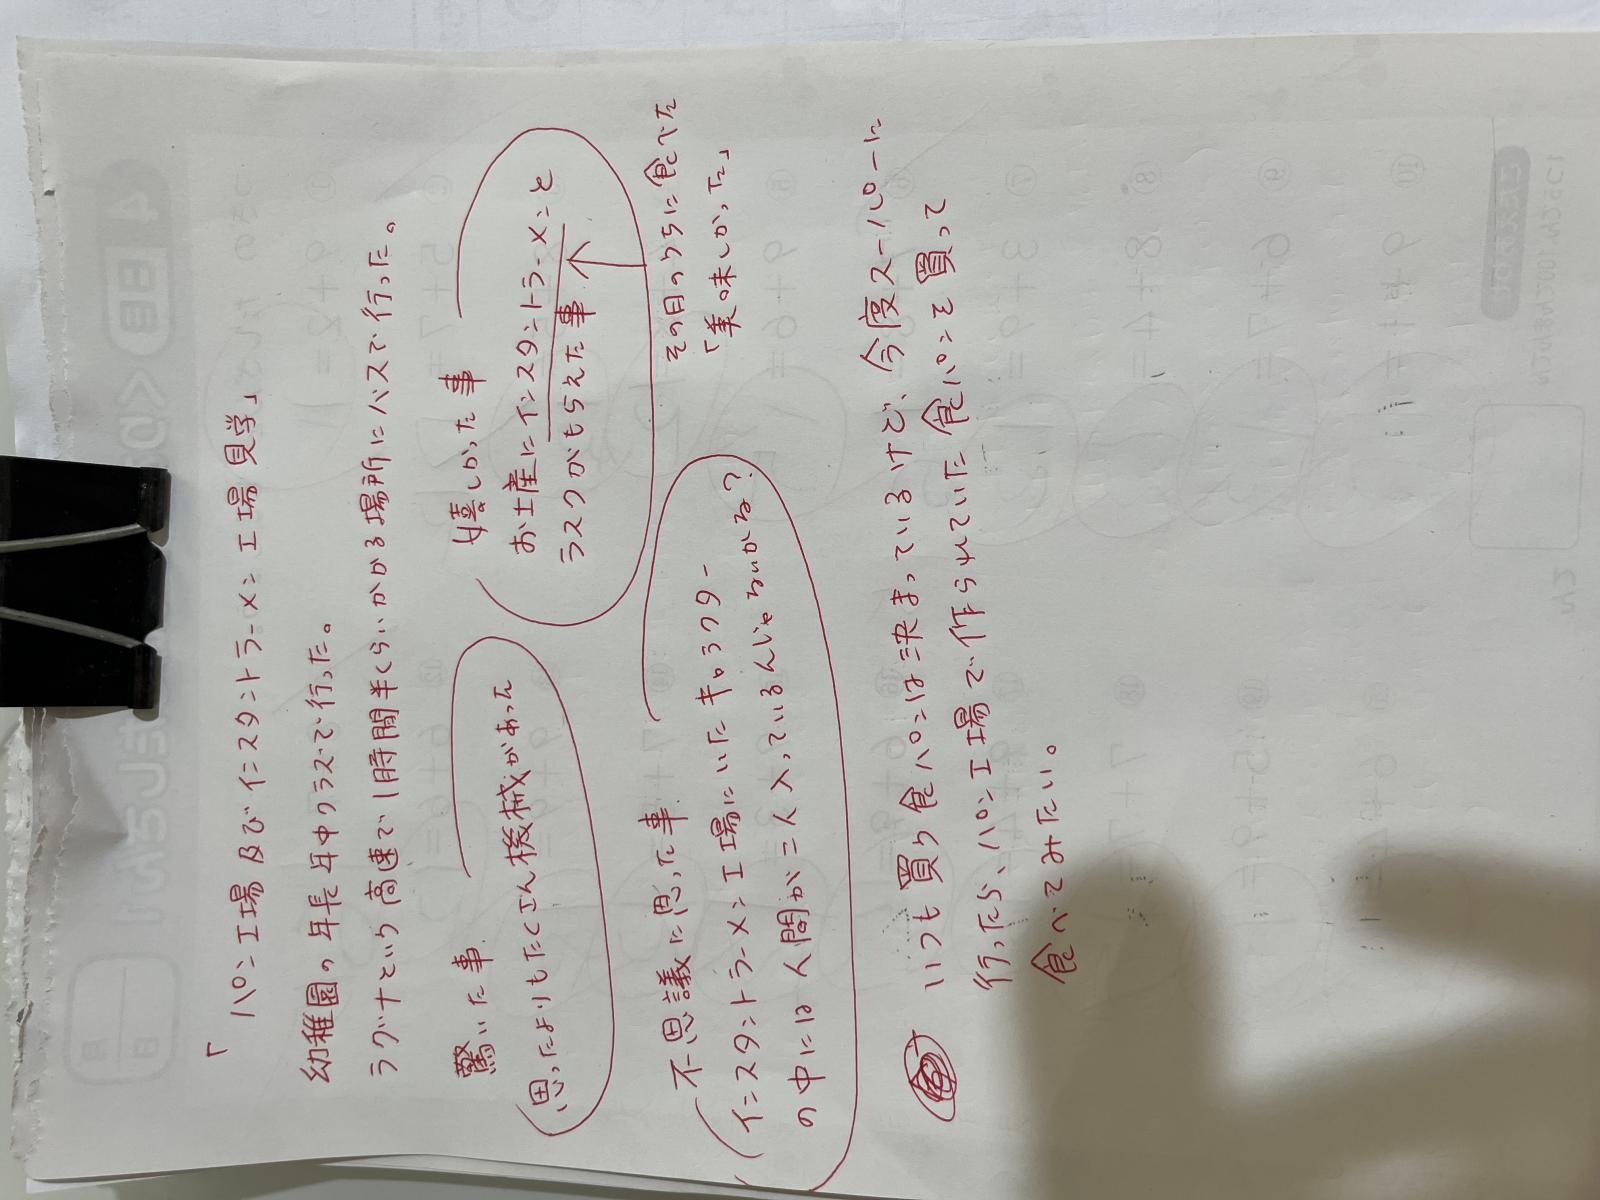 「パン工場及びインスタントラーメン工場見学」
幼稚園の年長年中クラスで行った。
ラグナという高速で1時間半くらいかかる場所にバスで行った。
驚いた事
思ったよりもたくさん機械があった
嬉しかった事
お土産にインスタントラーメンと
ラスクがもらえた事
その日のうちに食べた
「美味しかった」
不思議に思った事
インスタントラーメン工場にいたキャラクター
の中には人間が二人入っているんじゃないかな?
いつも買う食パンは決まっているけど、今度スーパーに
行ったら、パン工場で作られていた食パンを買って
食べてみたい。